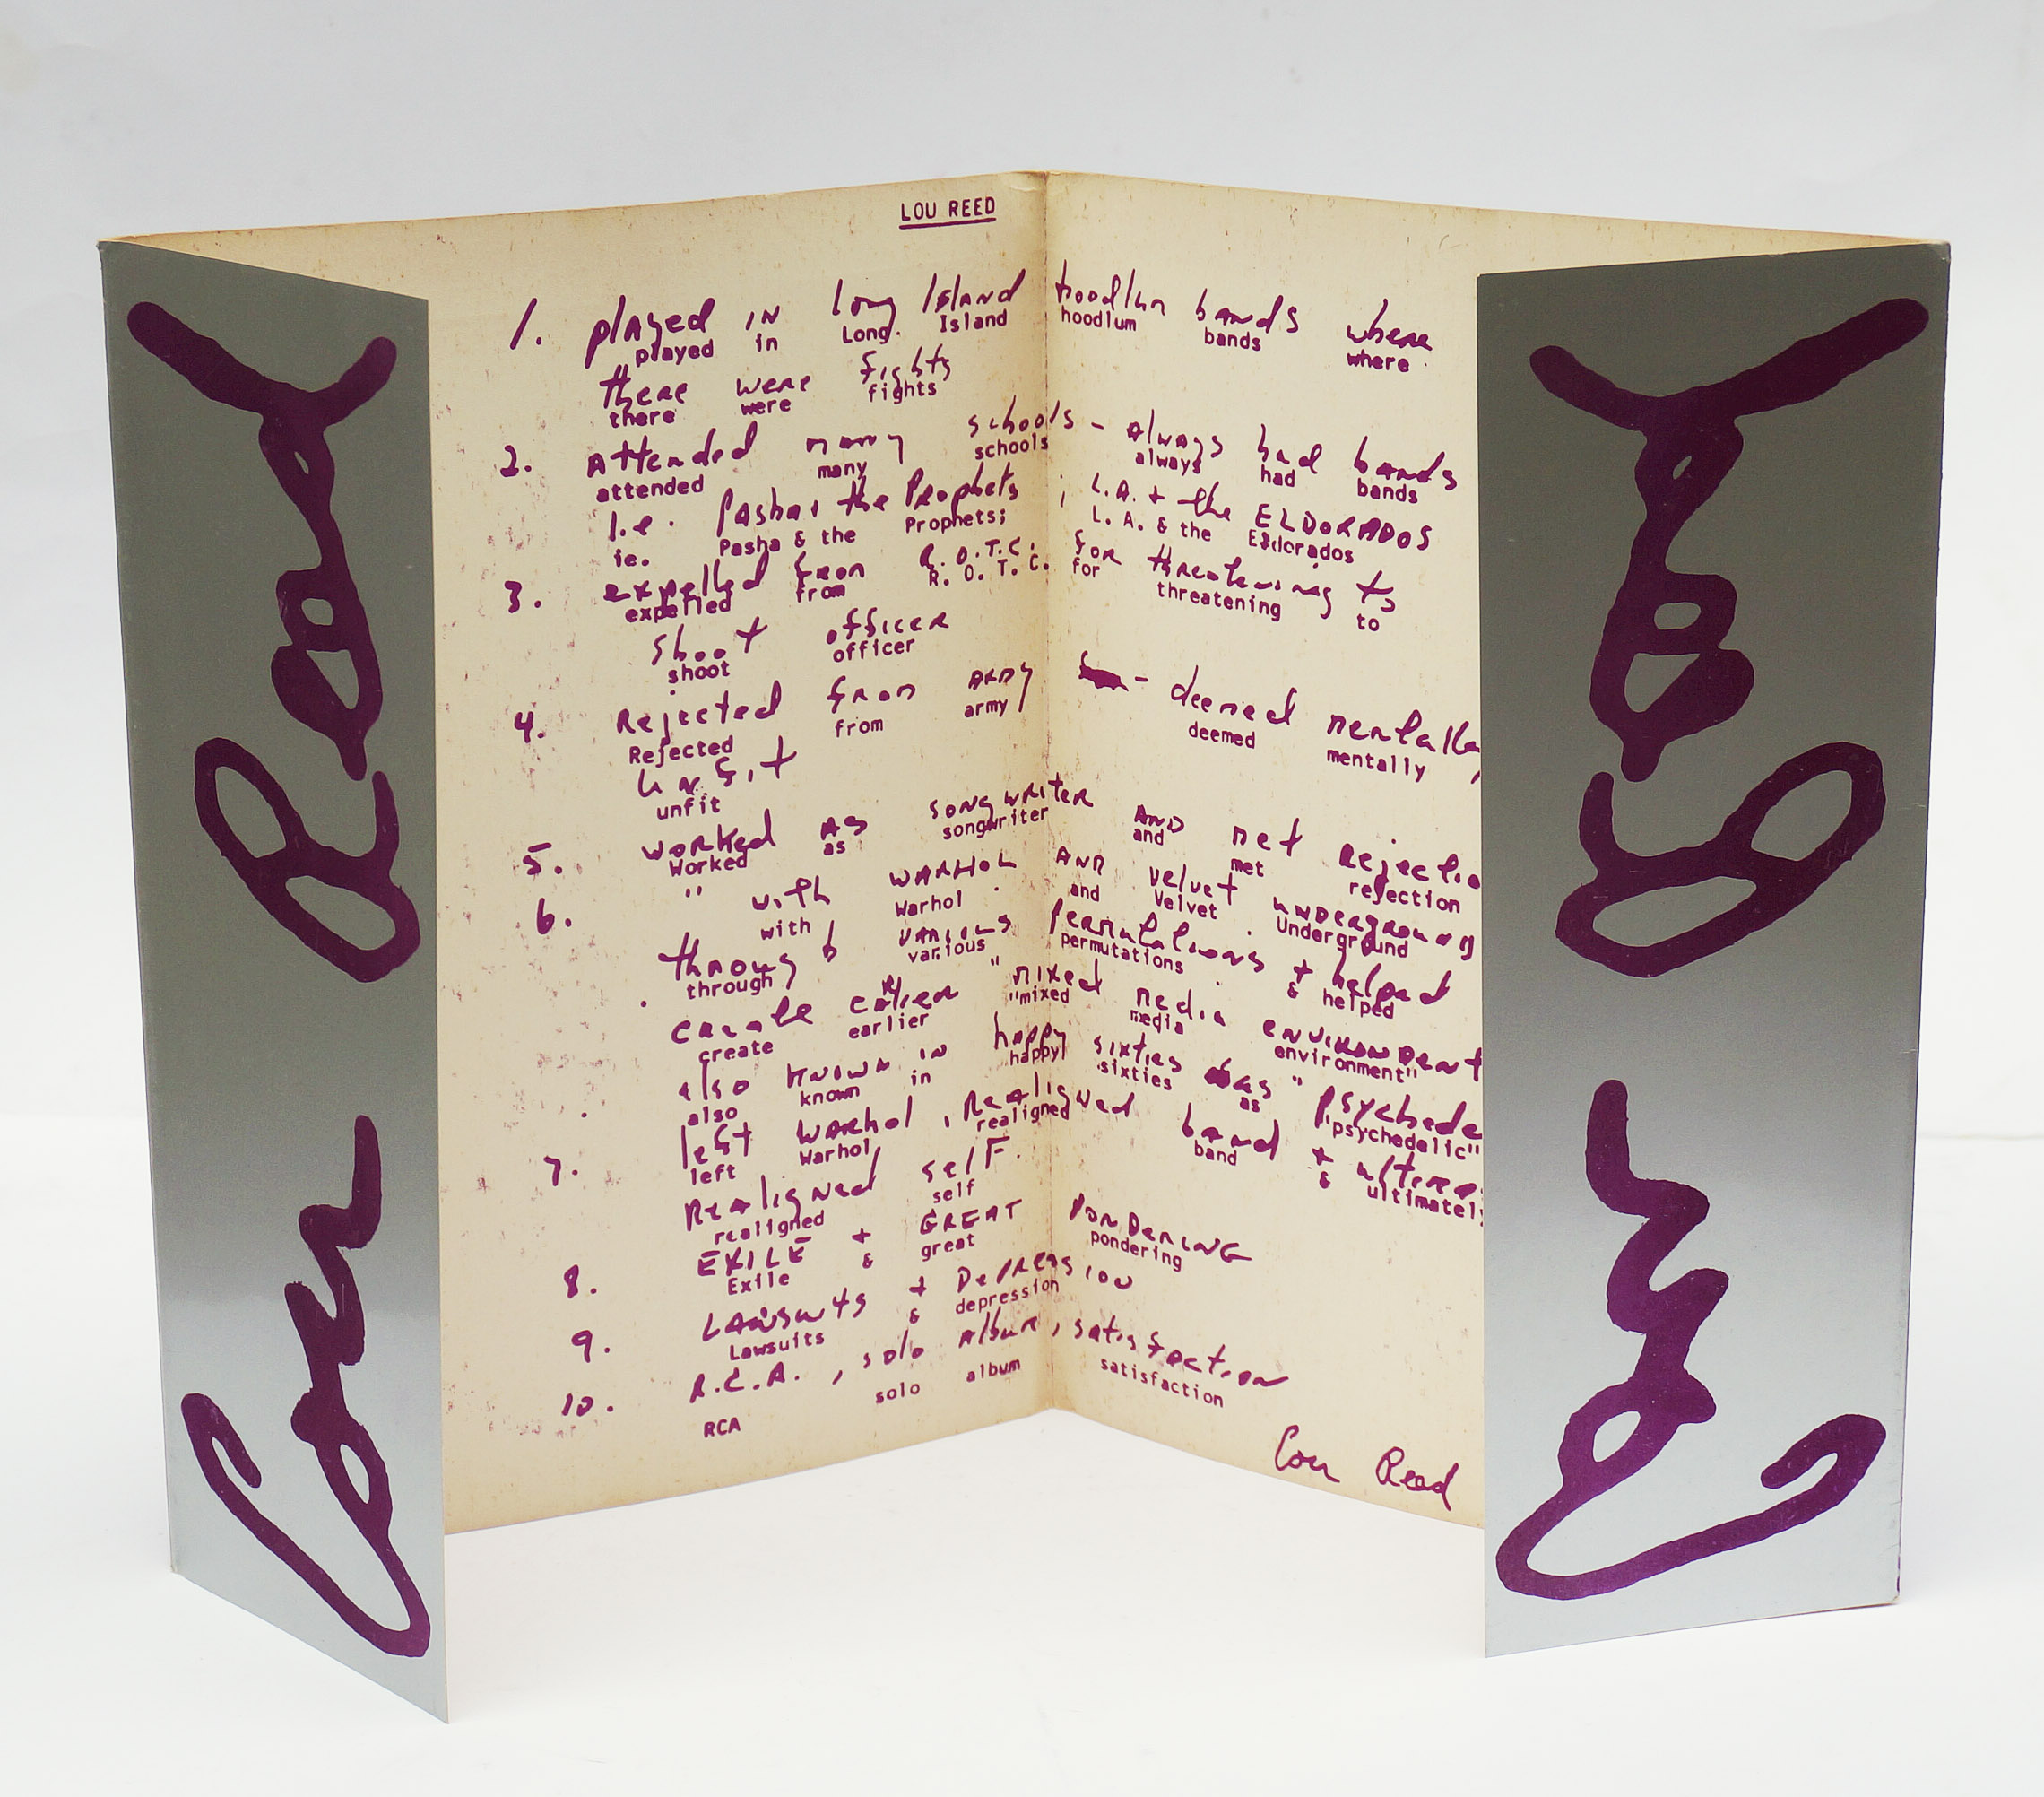 LOU REED
1. played in Long Island hoodlum bands where
played in Long Island hoodlum bands where
there were fights
there were fights
2. Attended many schools - always had bands
attended many schools always had bands
I.e. Pasha & the Prophets ; L.A. + the ELDORADOS
ie. Pasha & the Prophets; L. A. & the Eldorados
3. expelled from R.O.T.C. for threatening to
expelled from R. O. T. C. for threatening to
shoot officer
shoot officer
4. Rejected from army - deemed mentally
Rejected from army deemed mentally
unfit
unfit
5. worked as songwriter AND met Rejectio
Worked as songwriter and met rejection
6. " with WARHOL AND Velvet underground
with Warhol and Velvet Underground
through various permutations + helped
through various permutations & helped
create earlier "mixed media environment
create earlier "mixed media environment"
also known in happy sixties as "psychede
also known in happy sixties as "psychedelic"
7. left Warhol, Realigned band + ultima
left Warhol realigned band & ultimatel
Realigned self.
realigned self
8. EXILE + GREAT PONDERING
Exile & great pondering
9. LAWSUITS + Depression
Lawsuits & depression
10. R.C.A., solo Album, satisfaction
RCA solo album satisfaction
Lou Reed
Lou Reed
Lou Reed